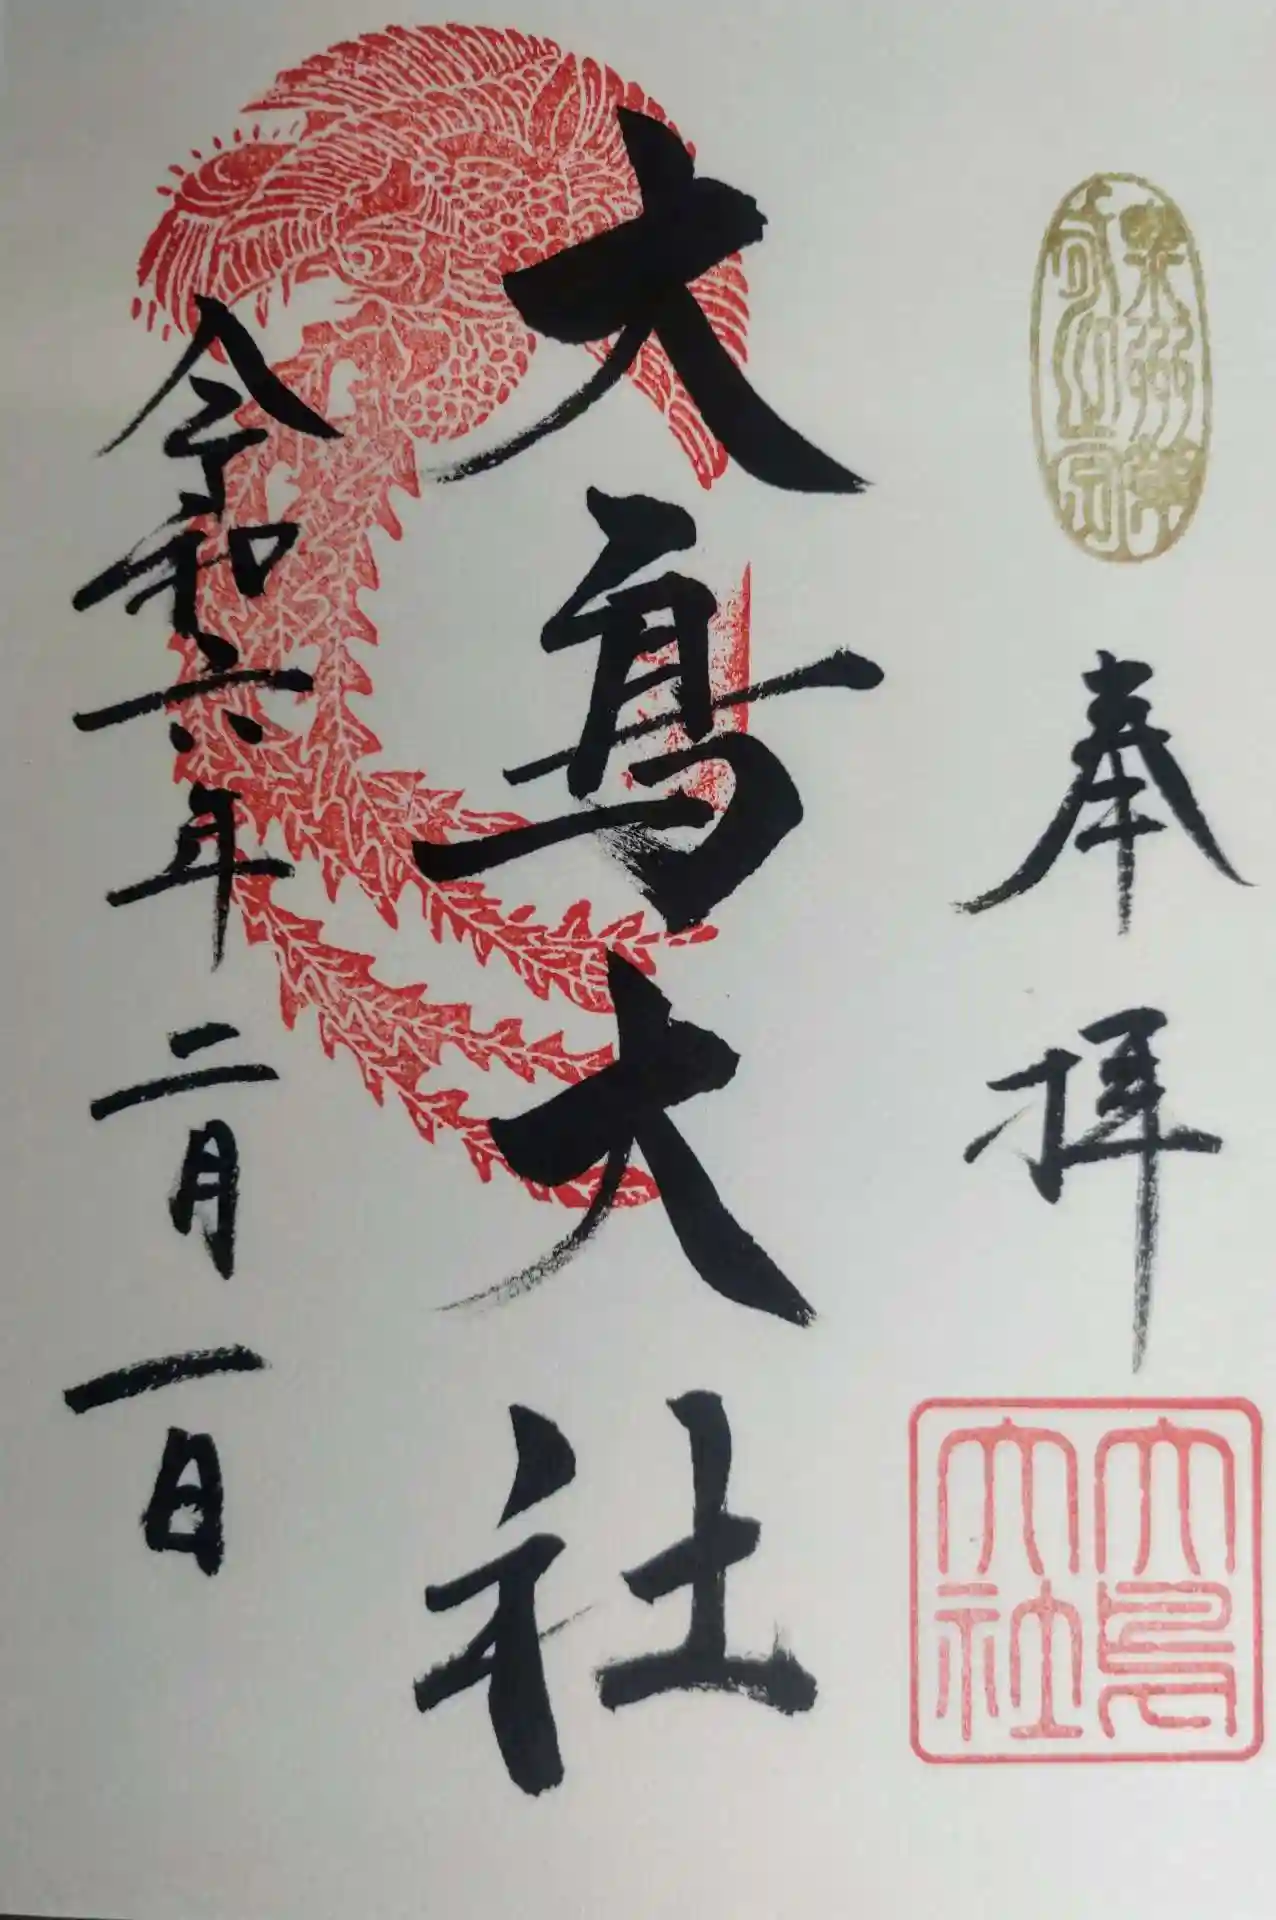 奉拝
大鳥
大社
大鳥大社
令和六年二月一日